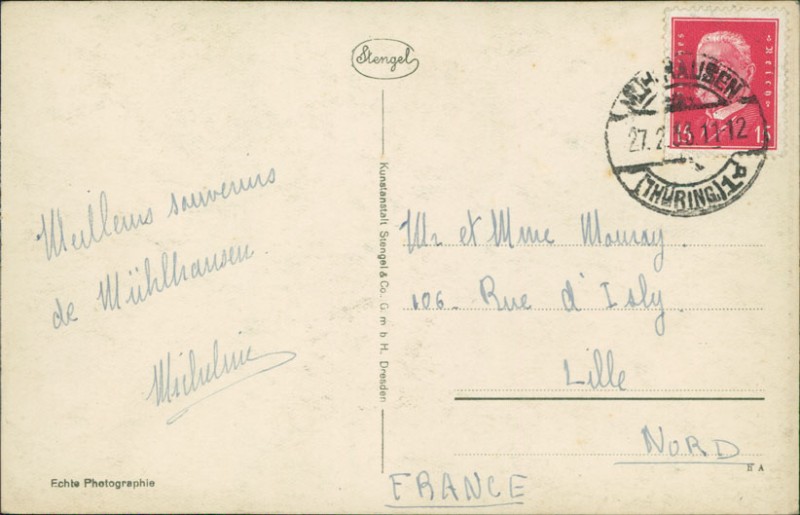 Stengel
Deutsches Reich
15 15
MÜHLHAUSEN
27.2. 11-12
(THÜRING.) 1
Meilleurs souvenirs
de Mühlhausen.
Micheline
Kunstanstalt Stengel & Co. G. m. b H. Dresden
Mr et Mme Mouray.
106 - Rue d'Isly.
Lille
NORD
FRANCE
Echte Photographie
E A